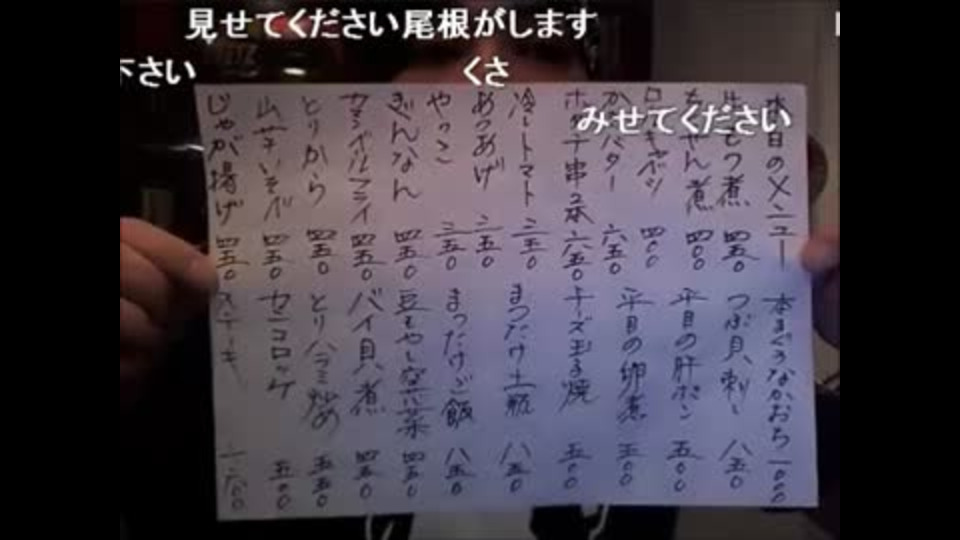 見せてください尾根がします
下さい
くさ
みせてください
本日のメニュー
もつ煮 四五〇
ちゃん煮 四〇〇
ロールキャベツ 四〇〇
バター 六五〇
ホタテ串2本 六五〇
冷しトマト 三五〇
あつあげ 三五〇
やっこ 三五〇
ぎんなん 四五〇
カマンベールフライ 四五〇
とりから 四五〇
山芋いそべ 四五〇
じゃが揚げ 四五〇
本まぐろなかおち 一〇〇〇
つぶ貝刺し 八五〇
平目の肝ポン 五〇〇
平目の卵煮 五〇〇
チーズ玉子焼 五〇〇
まつたけ土瓶 八五〇
まつたけご飯 八五〇
豆もやし空芯菜 四五〇
バイ貝煮 四五〇
とりハラミ炒め 五五〇
カニコロッケ 五〇〇
ステーキ